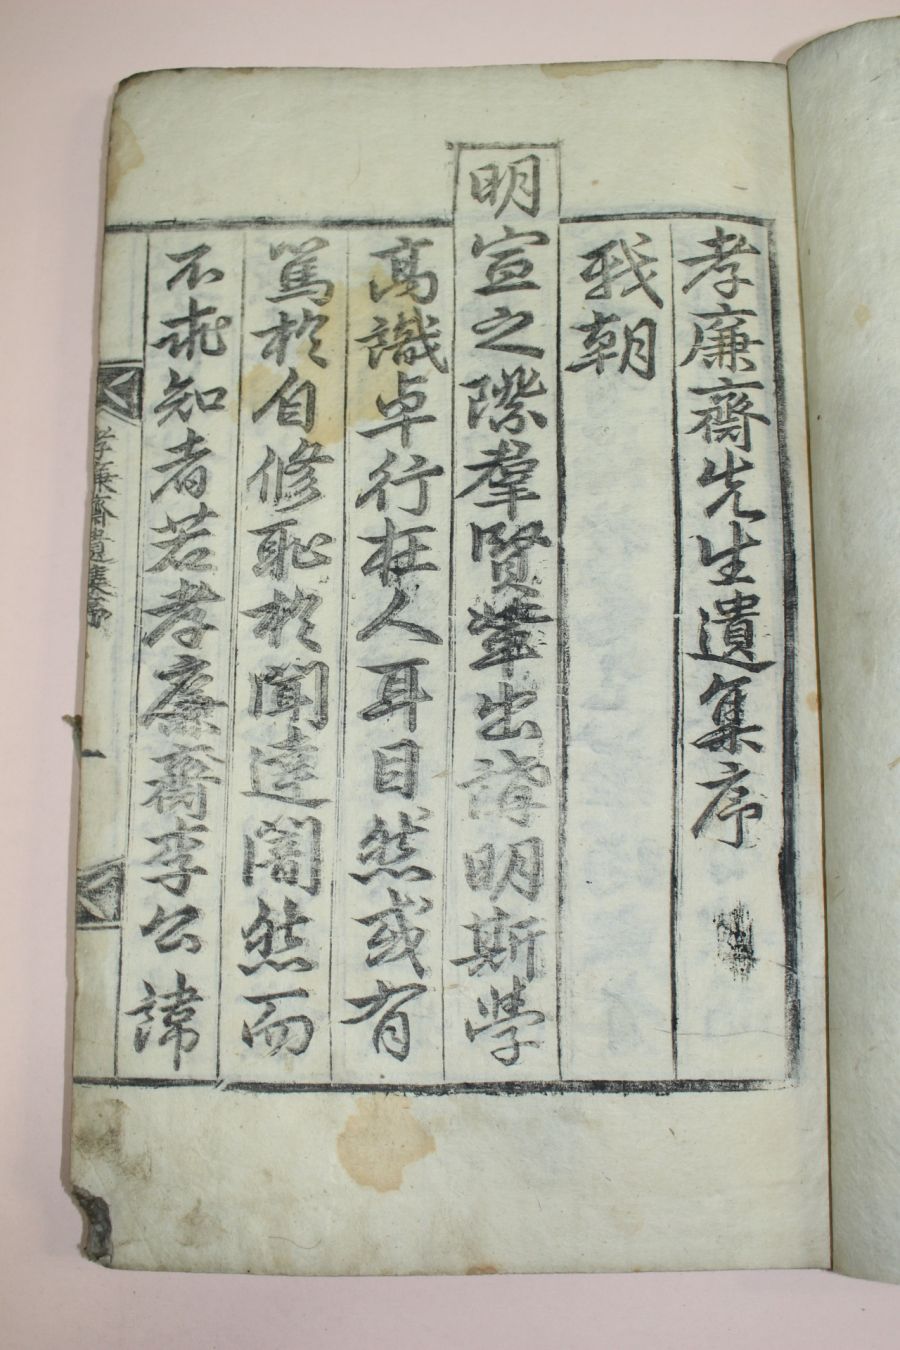 孝廉齋先生遺集序
我朝
明宣之際羣賢輩出講明斯學
高識卓行在人耳目然或有
篤於自修恥於聞達闇然而
不求知者若孝廉齋李公諱
孝廉齋遺集序
一